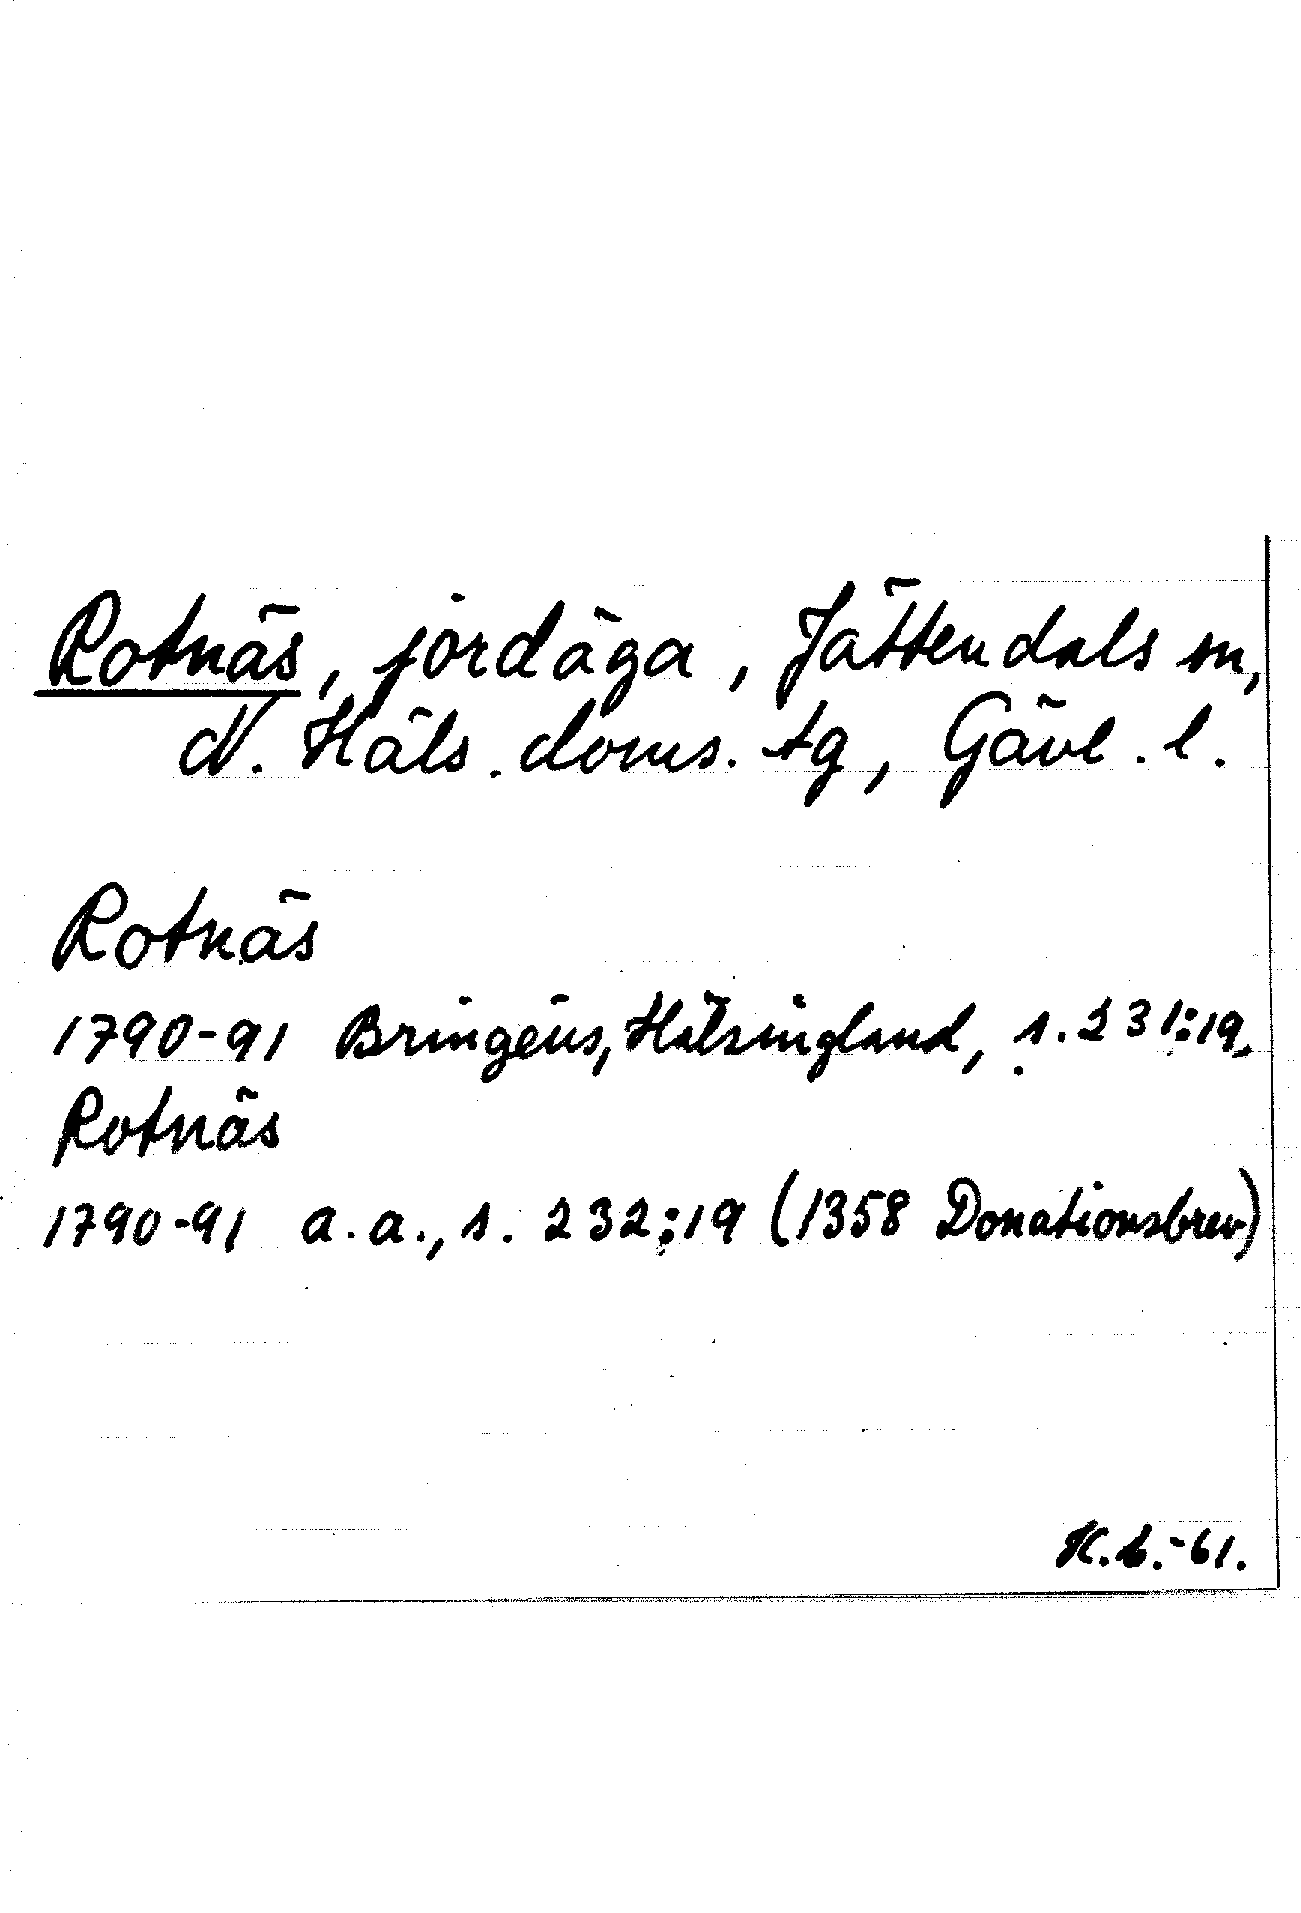 Rotnäs, jordäga, Jättendals sn,
N. Häls. doms. tg, Gävl. l.
Rotnäs
1790-91 Bringéus, Hälsingland, s. 231:19,
Rotnäs
1790-91 a.a., s. 232:19 (1358 Donationsbrev)
K.L.-61.